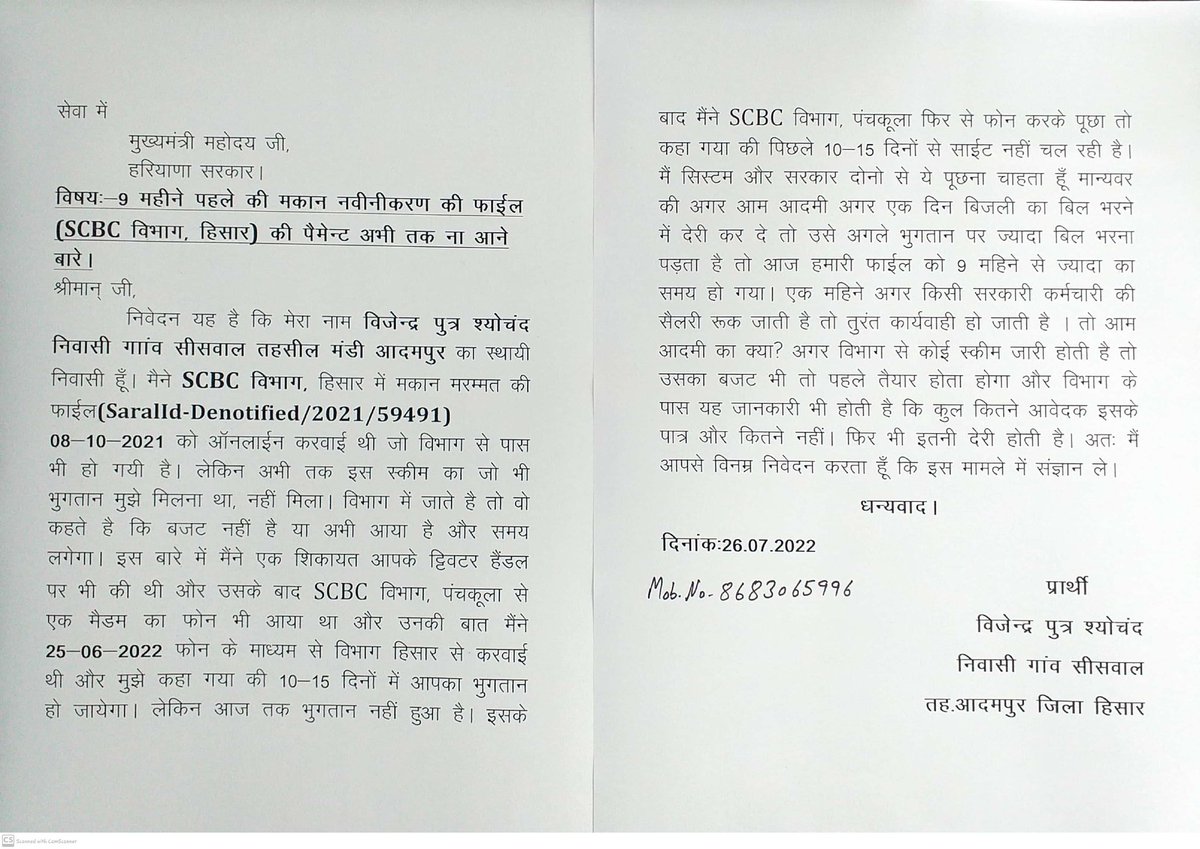 सेवा में
मुख्यमंत्री महोदय जी,
हरियाणा सरकार।
विषयः–9 महीने पहले की मकान नवीनीकरण की फाईल
(SCBC विभाग, हिसार) की पैमेन्ट अभी तक ना आने
बारे।
श्रीमान् जी,
निवेदन यह है कि मेरा नाम विजेन्द्र पुत्र श्योचंद
निवासी गाांव सीसवाल तहसील मंडी आदमपुर का स्थायी
निवासी हूँ। मैने SCBC विभाग, हिसार में मकान मरम्मत की
फाईल(SaralId-Denotified/2021/59491)
08–10–2021 को ऑनलाईन करवाई थी जो विभाग से पास
भी हो गयी है। लेकिन अभी तक इस स्कीम का जो भी
भुगतान मुझे मिलना था, नहीं मिला। विभाग में जाते है तो वो
कहते है कि बजट नहीं है या अभी आया है और समय
लगेगा। इस बारे में मैंने एक शिकायत आपके ट्विवटर हैंडल
पर भी की थी और उसके बाद SCBC विभाग, पंचकूला से
एक मैडम का फोन भी आया था और उनकी बात मैंने
25–06–2022 फोन के माध्यम से विभाग हिसार से करवाई
थी और मुझे कहा गया की 10–15 दिनों में आपका भुगतान
हो जायेगा। लेकिन आज तक भुगतान नहीं हुआ है। इसके
बाद मैंने SCBC विभाग, पंचकूला फिर से फोन करके पूछा तो
कहा गया की पिछले 10–15 दिनों से साईट नहीं चल रही है।
मैं सिस्टम और सरकार दोनो से ये पूछना चाहता हूँ मान्यवर
की अगर आम आदमी अगर एक दिन बिजली का बिल भरने
में देरी कर दे तो उसे अगले भुगतान पर ज्यादा बिल भरना
पड़ता है तो आज हमारी फाईल को 9 महिने से ज्यादा का
समय हो गया। एक महिने अगर किसी सरकारी कर्मचारी की
सैलरी रूक जाती है तो तुरंत कार्यवाही हो जाती है । तो आम
आदमी का क्या? अगर विभाग से कोई स्कीम जारी होती है तो
उसका बजट भी तो पहले तैयार होता होगा और विभाग के
पास यह जानकारी भी होती है कि कुल कितने आवेदक इसके
पात्र और कितने नहीं। फिर भी इतनी देरी होती है। अतः मैं
आपसे विनम्र निवेदन करता हूँ कि इस मामले में संज्ञान ले।
धन्यवाद।
दिनांकः26.07.2022
Mob.No- 8683065996
प्रार्थी
विजेन्द्र पुत्र श्योचंद
निवासी गांव सीसवाल
तह.आदमपुर जिला हिसार
CS Scanned with CamScanner